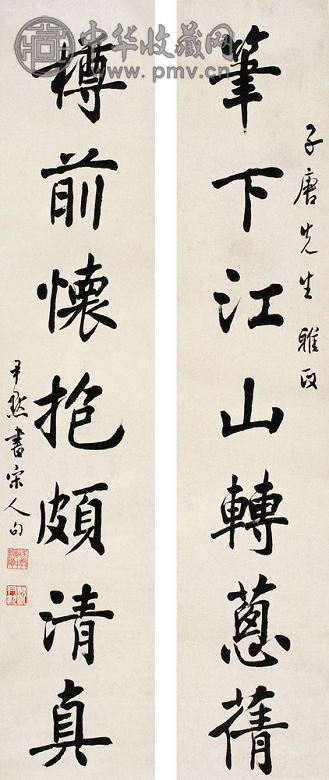 中华收藏网
www.pmv.cn
子唐先生雅正
筆下江山轉蔥蒨
樽前懷抱頗清真
尹默書宋人句